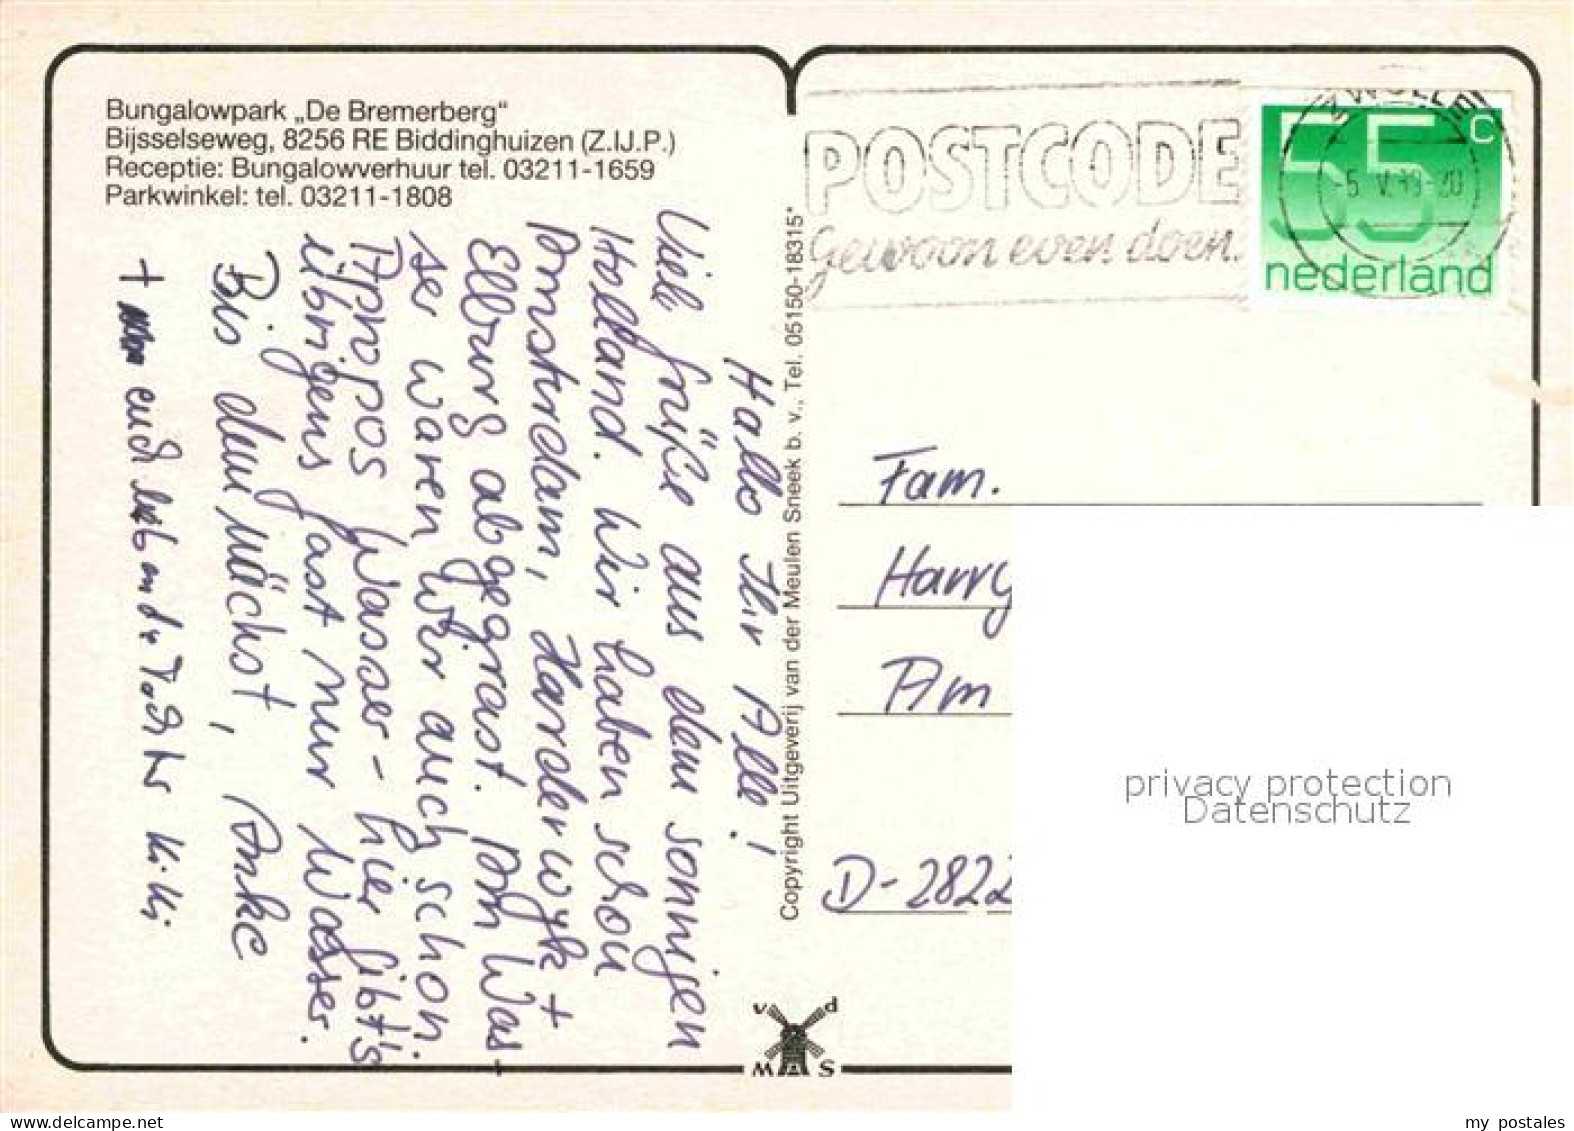 Bungalowpark „De Bremerberg"
Bijsselseweg, 8256 RE Biddinghuizen (Z.IJ.P.)
Receptie: Bungalowverhuur tel. 03211-1659
Parkwinkel: tel. 03211-1808
Hallo Ihr Alle!
Viele Grüße aus dem sonnigen
Holland. Wir haben schon
Amsterdam, Harderwyk +
Elburg abgegrast. Am Was-
ser waren wir auch schon.
Apropos Wasser - hier gibt's
übrigens fast nur Wasser.
Bis demnächst, Anke
+ euch
Copyright Uitgeverij van der Meulen Sneek b. v., Tel. 05150-18315*
v d
M S
POSTCODE
Gewoon even doen.
ZWOLLE
-5.V. -20
55 c
nederland
Fam.
Harry
Am
D-2822
privacy protection
Datenschutz
my postales